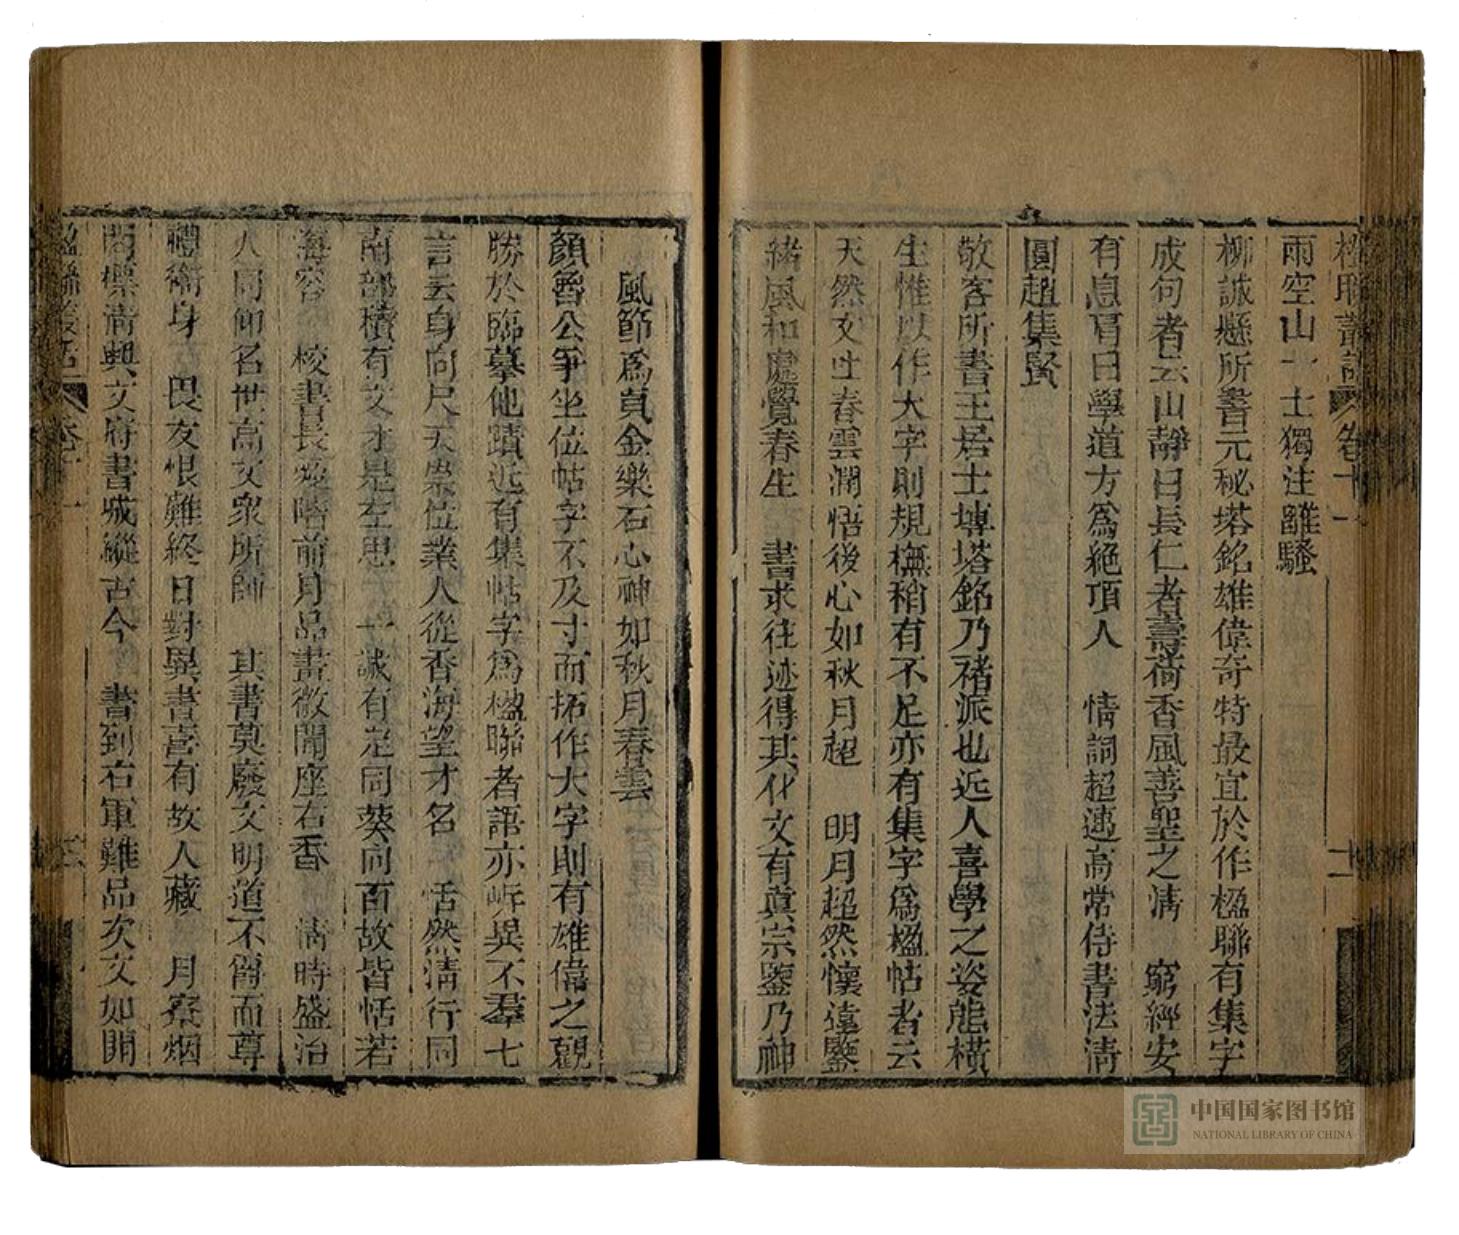 楹聯叢話 卷十一 十二
雨空山一士獨注離騷
柳誠懸所書元秘塔銘雄偉奇特最宜於作楹聯有集字
成句者云山靜日長仁者壽荷香風善聖之清 窮經安
有息肩日學道方爲絕頂人 情詞超邁高常侍書法清
圓趙集賢
敬客所書王居士塼塔銘乃褚派也近人喜學之姿態橫
生惟以作大字則規橅稍有不足亦有集字爲楹帖者云
天然文吐春雲潤悟後心如秋月超 明月超然懷遠鑒
緒風和處覺春生 書求往迹得其化文有眞宗鑒乃神
風節爲貞金樂石心神如秋月春雲
顏魯公爭坐位帖字不及寸而拓作大字則有雄偉之觀
勝於臨摹他蹟近有集帖字爲楹聯者語亦嶄異不羣七
言云身向尺天崇位業人從香海望才名 恬然清行同
南部積有文才是左思 一誠有定同葵向百故皆恬若
海容 校書長愛階前月品畫微聞座右香 清時盛治
人同仰名世高文衆所師 其書莫廢文明道不爾而尊
禮衛身 畏友恨難終日對異書喜有故人藏 月寮烟
閣標清興文府書城縱古今 書到右軍難品次文如開
楹聯叢話 卷十一
中国国家图书馆
NATIONAL LIBRARY OF CHINA